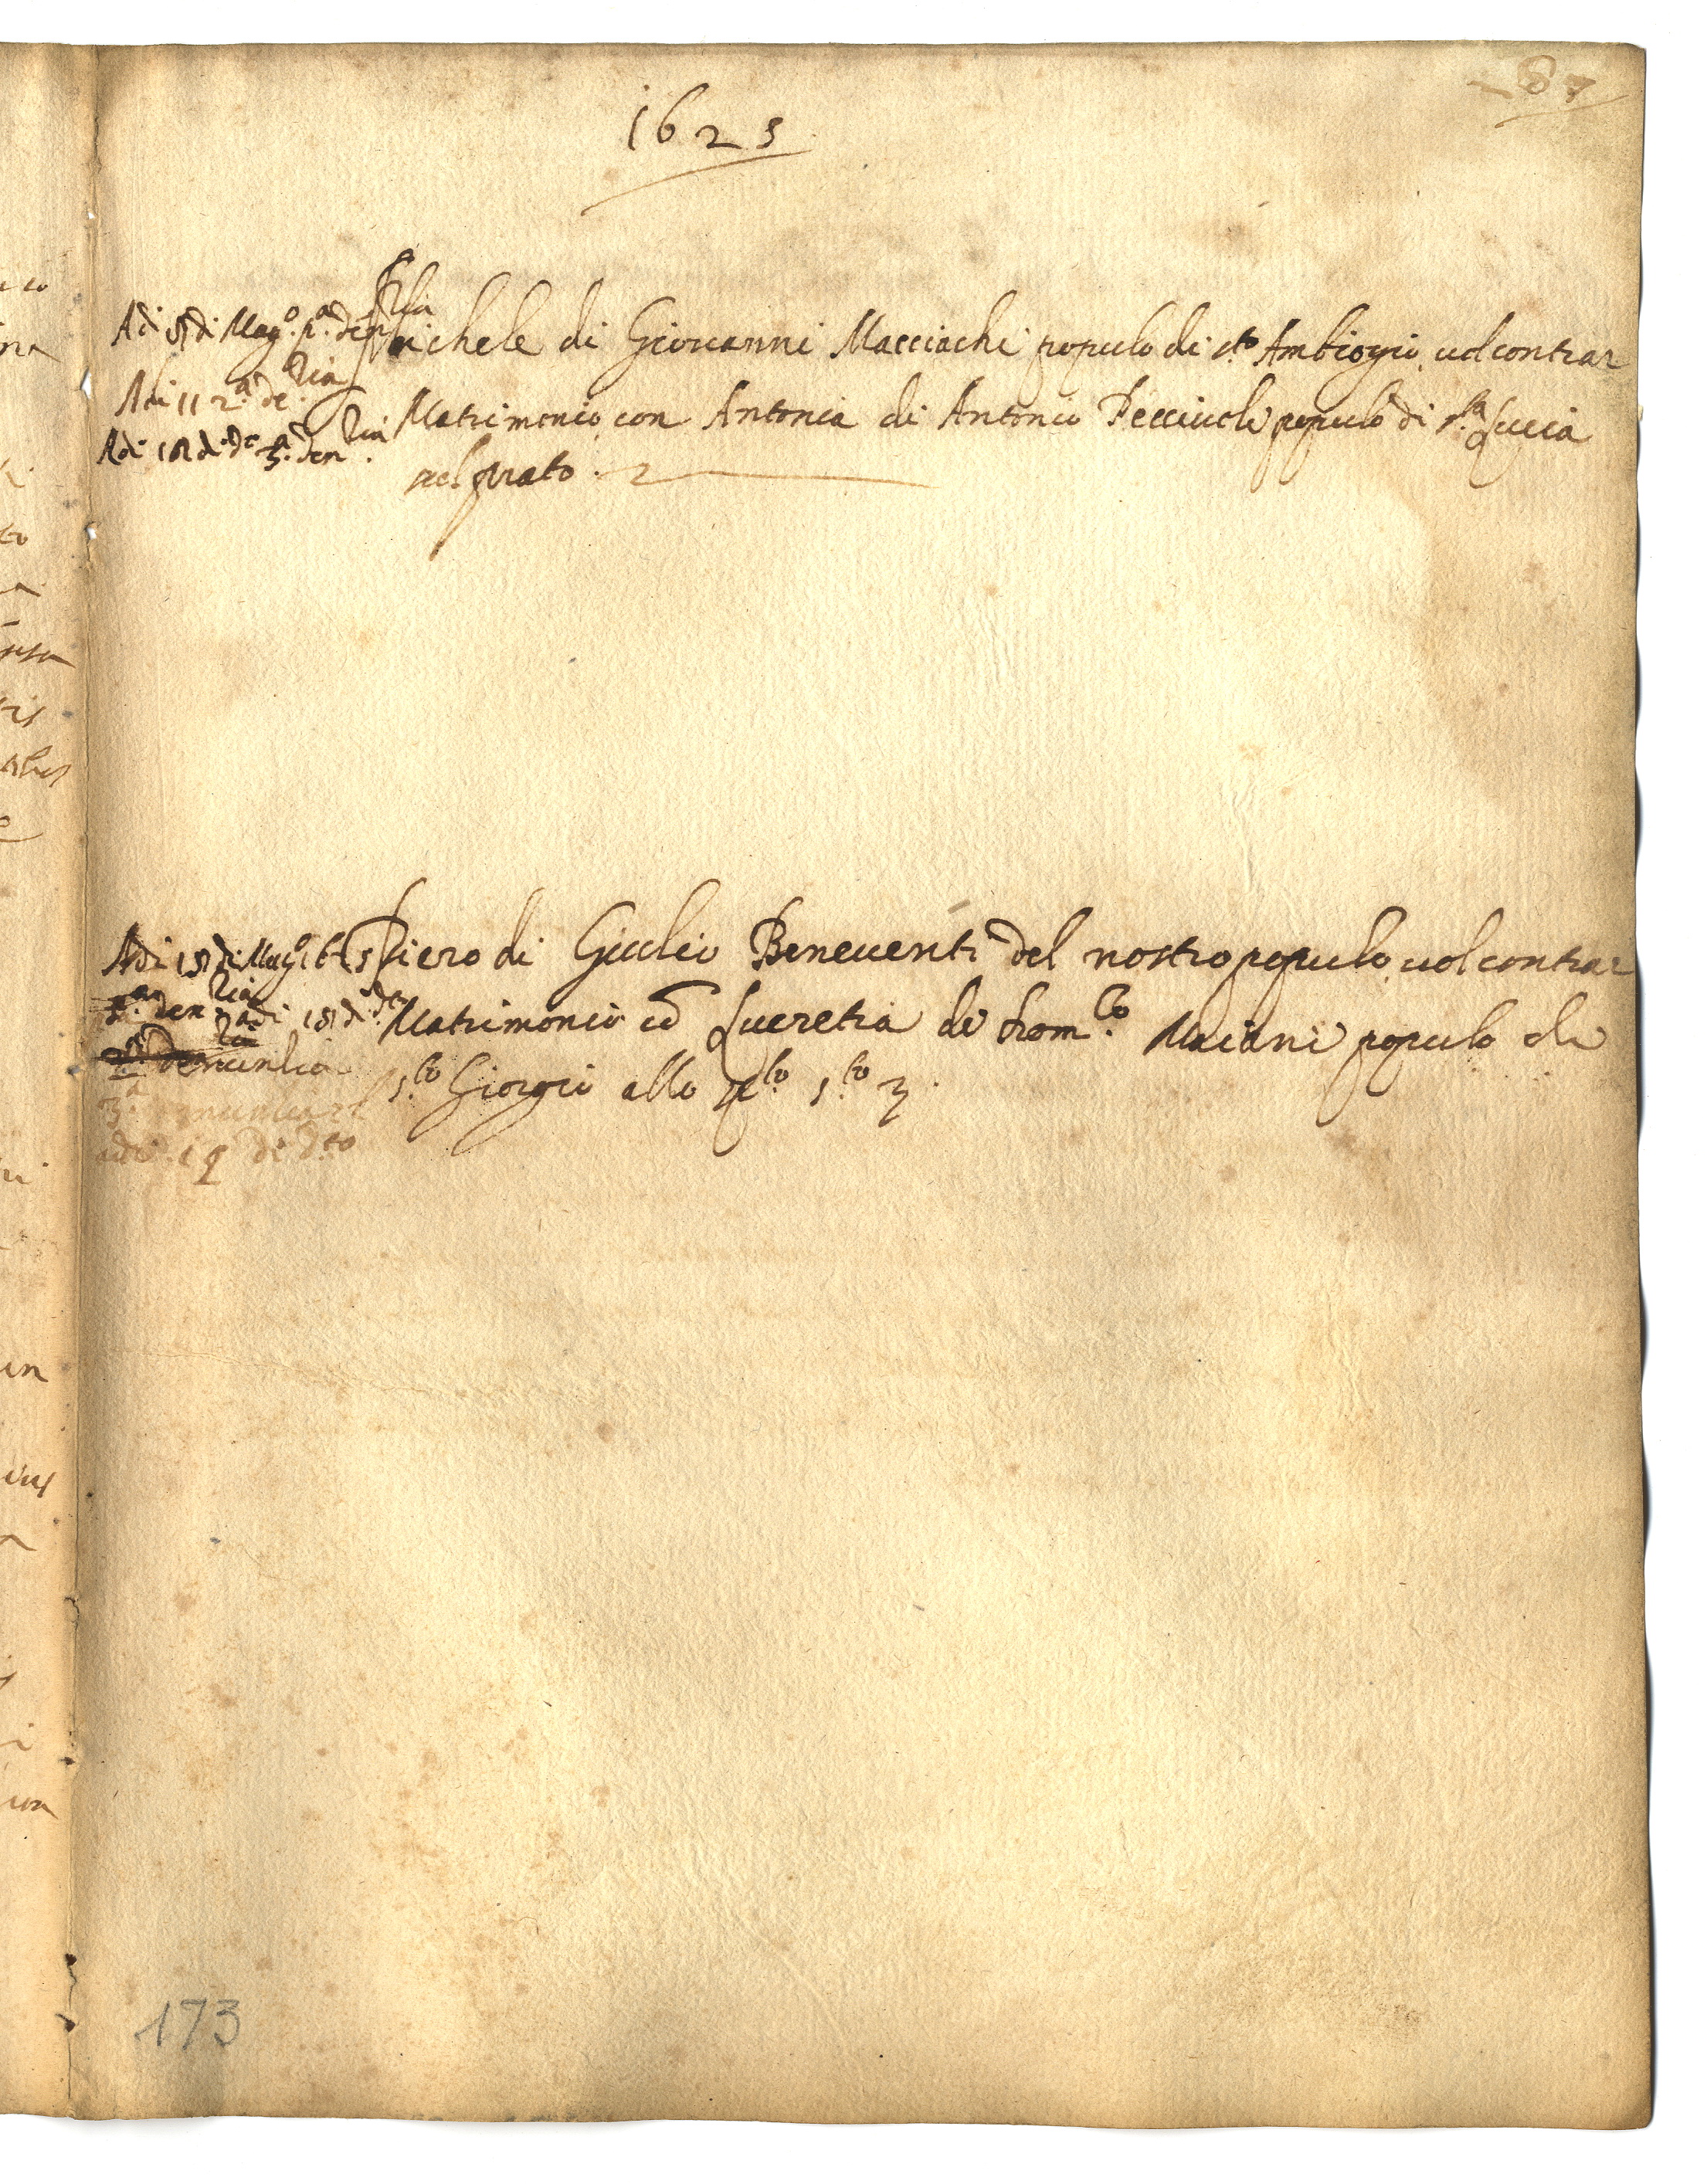 87
1625
Adi 8 di Mag.o p.a den.tia
Adi 11 2.a de.tia
Adi 18 di d.o 3.a den.tia
Michele di Giovanni Macciachi populo di s.to Ambrogio uol contrar
Matrimonio con Antonia di Antonio Pecciuoli populo di s.ta Lucia
sul prato
Adi 15 di Mag.o 1625
p.a den.tia adi 18 di d.o
2.a denuntia
3.a denuntia
adi 19 di d.to
Piero di Giulio Beneuenti del nostro populo uol contrar
Matrimonio cō Lucretia di Dom.co Maiani populo di
s.to Giorgio allo sp.to s.to
173